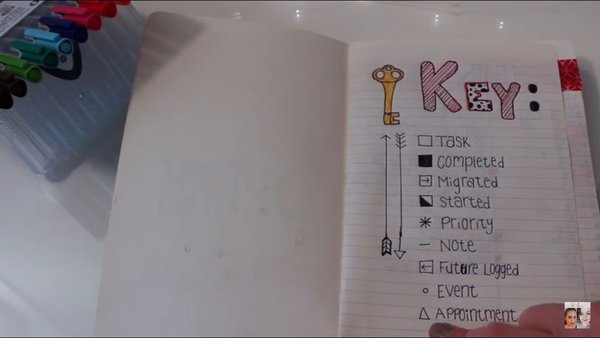 Key:
Task
Completed
Migrated
Started
Priority
Note
Future Logged
Event
Appointment